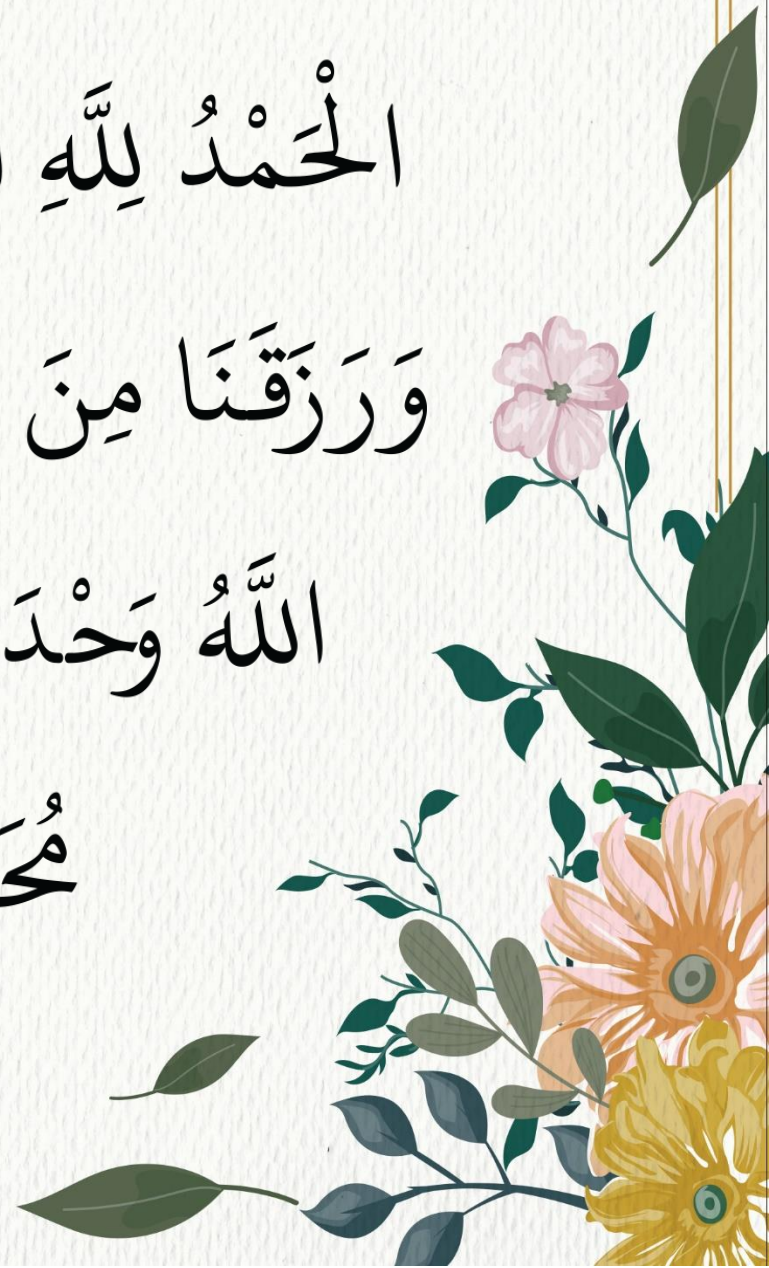 الْحَمْدُ لِلَّهِ
وَرَزَقَنَا مِنَ
اللَّهُ وَحْدَ
مُحَ